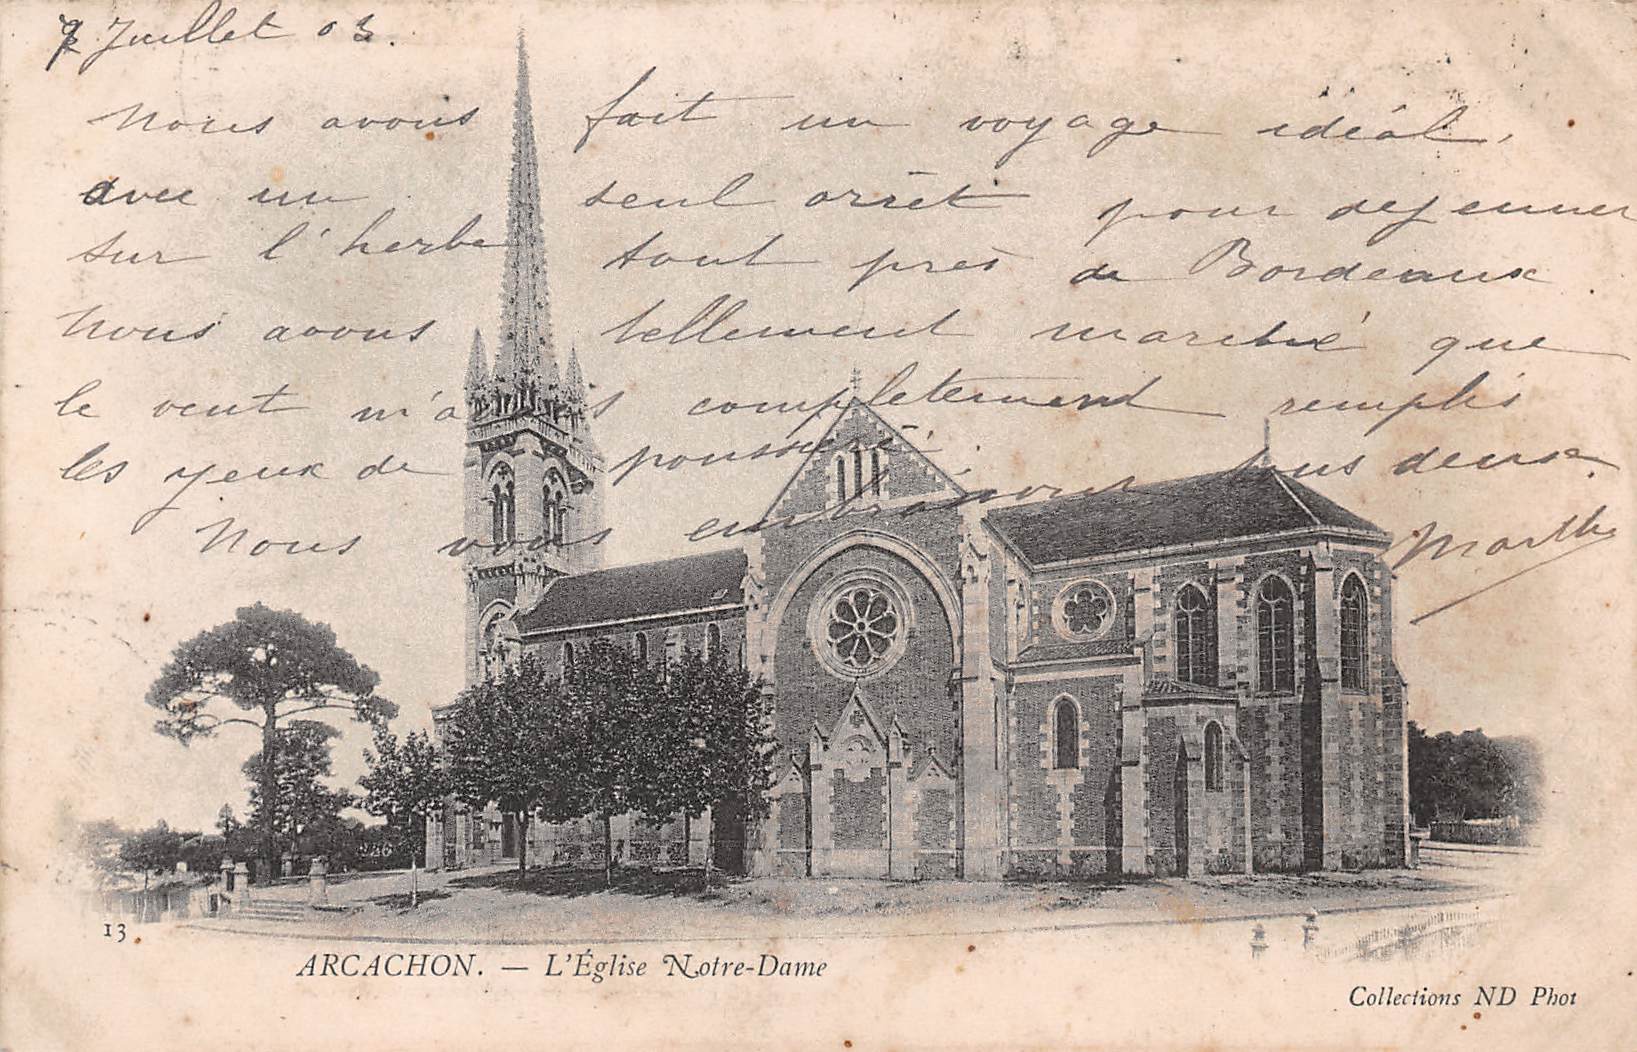 Juillet 03.
Nous avons fait un voyage idéal,
avec un seul arrêt pour dejeuner
sur l'herbe tout près de Bordeaux
Nous avons tellement marché que
le vent m'a completement remplis
les yeux de poussière.
Nous vous embrassons tous deux.
Marthe
13
ARCACHON. — L'Église Notre-Dame
Collections ND Phot